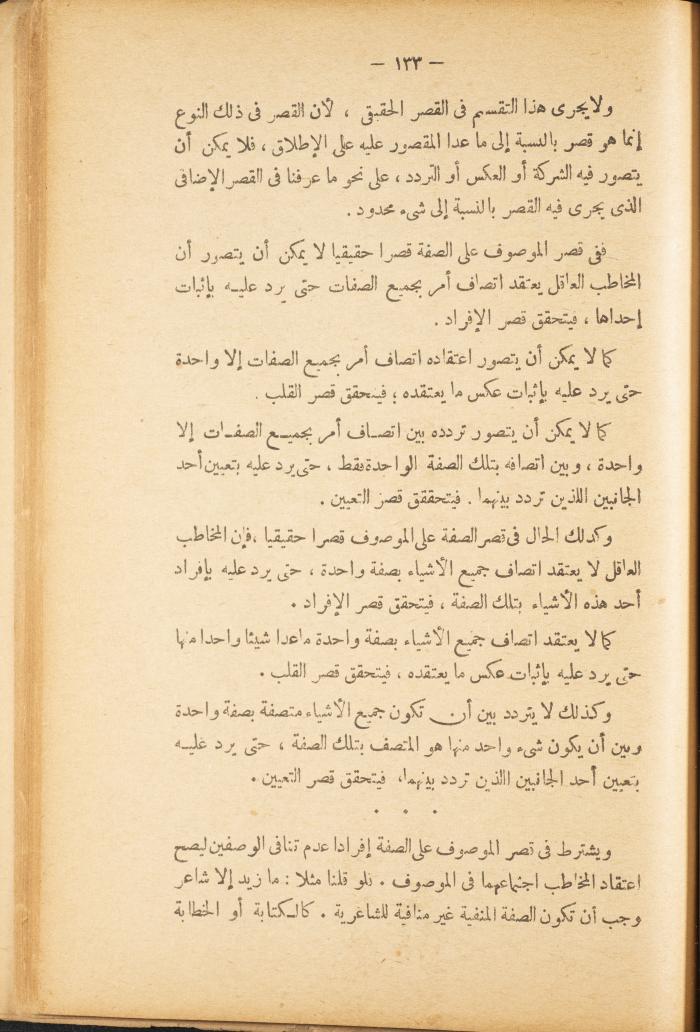 — ١٣٣ —
ولا يجرى هذا التقسيم فى القصر الحقيقى ، لأن القصر فى ذلك النوع
إنما هو قصر بالنسبة إلى ما عدا المقصور عليه على الإطلاق ، فلا يمكن أن
يتصور فيه الشركة أو العكس أو التردد ، على نحو ما عرفنا فى القصر الإضافى
الذى يجرى فيه القصر بالنسبة إلى شىء محدود .
ففى قصر الموصوف على الصفة قصرا حقيقيا لا يمكن أن يتصور أن
المخاطب العاقل يعتقد اتصاف أمر بجميع الصفات حتى يرد عليه بإثبات
إحداها ، فيتحقق قصر الإفراد .
كما لا يمكن أن يتصور اعتقاده اتصاف أمر بجميع الصفات إلا واحدة
حتى يرد عليه بإثبات عكس ما يعتقده ؛ فيتحقق قصر القلب .
كما لا يمكن أن يتصور تردده بين اتصاف أمر بجميع الصفات إلا
واحدة ، وبين اتصافه بتلك الصفة الواحدة فقط ، حتى يرد عليه بتعيين أحد
الجانبين اللذين تردد بينهما . فيتحققق قصر التعيين .
وكذلك الحال فى قصر الصفة على الموصوف قصرا حقيقيا ، فإن المخاطب
العاقل لا يعتقد اتصاف جميع الأشياء بصفة واحدة ، حتى يرد عليه بإفراد
أحد هذه الأشياء بتلك الصفة ، فيتحقق قصر الإفراد .
كما لا يعتقد اتصاف جميع الأشياء بصفة واحدة ماعدا شيئا واحدا منها
حتى يرد عليه بإثبات عكس ما يعتقده ، فيتحقق قصر القلب .
وكذلك لا يتردد بين أن تكون جميع الأشياء متصفة بصفة واحدة
وبين أن يكون شىء واحد منها هو المتصف بتلك الصفة ، حتى يرد عليه
بتعيين أحد الجانبين اللذين تردد بينهما، فيتحقق قصر التعيين .
. . .
ويشترط فى قصر الموصوف على الصفة إفرادا عدم تنافى الوصفين ليصح
اعتقاد المخاطب اجتماعهما فى الموصوف . فلو قلنا مثلا : ما زيد إلا شاعر
وجب أن تكون الصفة المنفية غير منافية للشاعرية . كالكتابة أو الخطابة